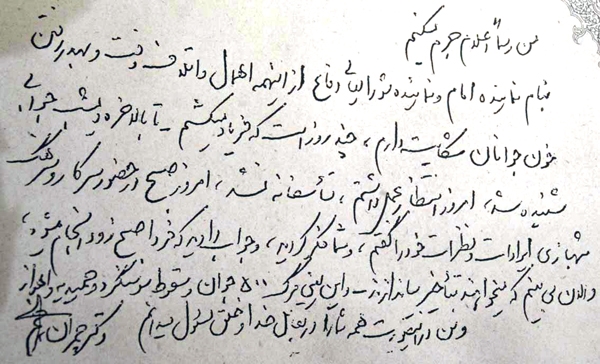 من رسماً اعلام جرم میکنم
بنام نماینده امام و نماینده شورایعالی دفاع از اینهمه اهمال و اتلاف وقت و بهدر رفتن
خون جوانان شکایت دارم، چند روز است که فریاد میکشم - تا بالاخره دیشب جوابی
شنیده شد، امروز انتظار عمل داشتم، متأسفانه نشد، امروز صبح در حضور سرکار سرهنگ
شهبازی ایرادات و نظرات خود را گفتم، و شما کردید، و جواب دادید که فردا صبح زود انجام میشود،
و الان می بینم که میخواهند بتأخیر بیاندازند - و این یعنی مرگ ۵۰۰ جوان و سقوط سوسنگرد و حمیدیه و اهواز
و من در اینصورت همه شما را در مقابل خدا و خلق مسئول میدانم دکتر چمران